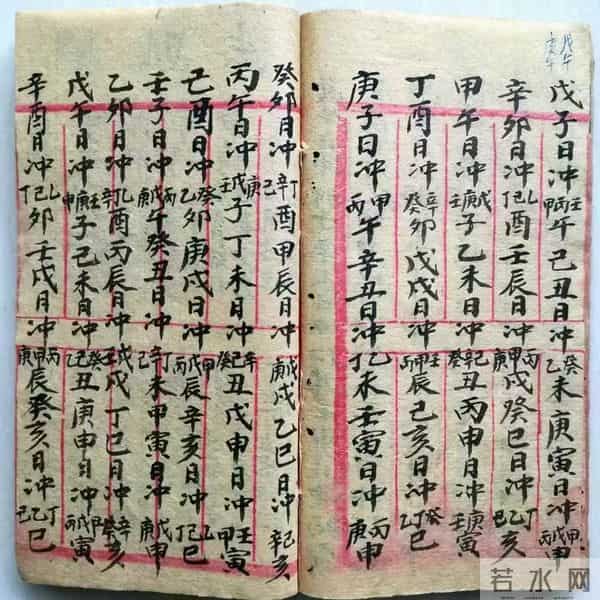 戊午
庚午
戊子日冲壬丙甲午己丑日冲癸乙未庚寅日冲甲戊丙申
辛卯日冲乙己丁酉壬辰日冲丙甲庚戌癸巳日冲丁乙己亥
甲午日冲戊庚壬子乙未日冲己辛癸丑丙申日冲庚壬寅
丁酉日冲辛癸卯戊戌日冲壬甲丙辰己亥日冲癸丁乙巳
庚子日冲甲丙午辛丑日冲乙丁未壬寅日冲丙庚申
癸卯日冲丁辛己酉甲辰日冲戊庚戌乙巳日冲己辛亥
丙午日冲庚戊壬子丁未日冲辛己癸丑戊申日冲壬甲寅
己酉日冲癸乙卯庚戌日冲甲戊丙辰辛亥日冲乙己丁巳
壬子日冲丙戊庚午癸丑日冲丁辛未甲寅日冲戊庚申
乙卯日冲丁辛酉丙辰日冲戊壬戌丁巳日冲辛癸亥
戊午日冲壬甲子己未日冲癸己乙丑庚申日冲戊丙寅
辛酉日冲乙己丁卯壬戌日冲丙甲庚辰癸亥日冲丁乙己巳
若水网